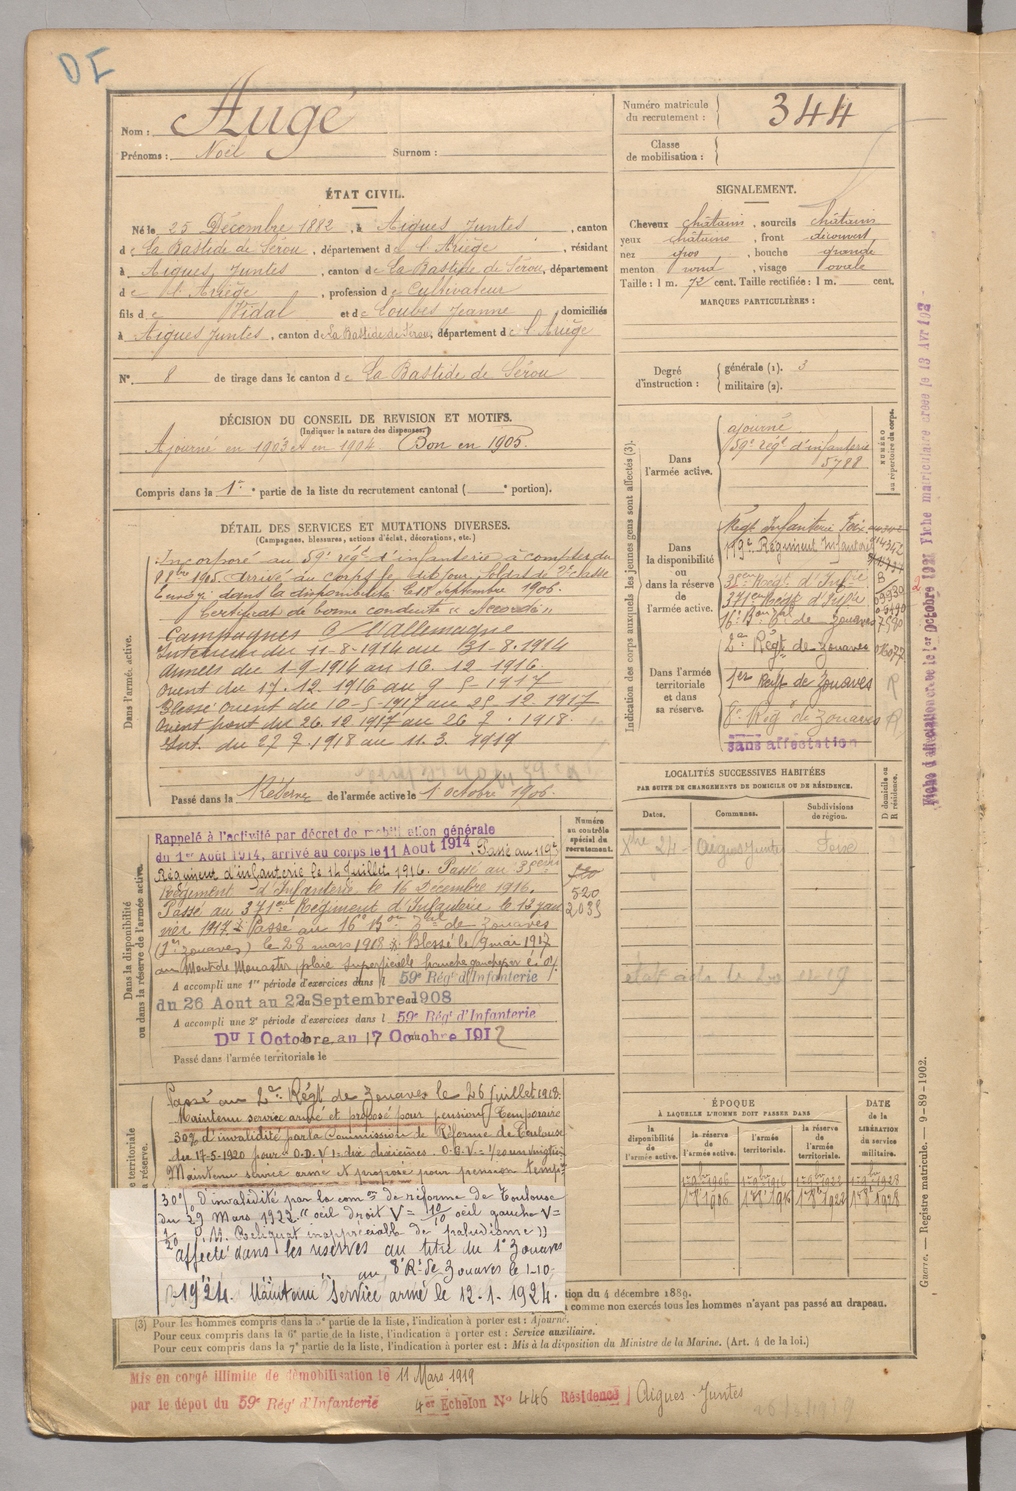 DE
Nom : Augé
Prénoms : Noël Surnom :
Numéro matricule du recrutement : 344
Classe de mobilisation :
ÉTAT CIVIL.
Né le 25 Décembre 1882, à Aigues Juntes, canton
de La Bastide de Sérou, département de l'Ariège, résidant
à Aigues Juntes, canton de La Bastide de Sérou, département
de l'Ariège, profession de Cultivateur
fils de Vidal et de Loubes Jeanne domiciliés
à Aigues Juntes, canton de La Bastide de Sérou, département de l'Ariège
N° 8 de tirage dans le canton de La Bastide de Sérou
SIGNALEMENT.
Cheveux châtain, sourcils châtain
yeux châtains, front découvert,
nez gros, bouche grande
menton rond, visage ovale
Taille : 1 m. 72 cent. Taille rectifiée : 1 m. cent.
MARQUES PARTICULIÈRES :
Degré d'instruction : générale (1). 3
militaire (2).
DÉCISION DU CONSEIL DE REVISION ET MOTIFS.
(Indiquer la nature des dispenses.)
Ajourné en 1903 et en 1904 Bon en 1905.
Compris dans la 1re partie de la liste du recrutement cantonal ( e portion).
DÉTAIL DES SERVICES ET MUTATIONS DIVERSES.
(Campagnes, blessures, actions d'éclat, décorations, etc.)
Dans l'armée active.
Incorporé au 59e régt d'infanterie à compter du
8 8bre 1905. Arrivé au corps le dit jour, Soldat de 2e classe
Envoyé dans la disponibilité le 18 septembre 1906.
Certificat de bonne conduite "Accordé"
Campagnes C/ l'Allemagne
Intérieur du 11-8-1914 au 31-8-1914
Armées du 1-9-1914 au 16.12.1916.
Orient du 17.12.1916 au 9-5-1917
Blessé Orient du 10-5-1917 au 25.12.1917
Orient front du 26.12.1917 au 26.7.1918.
Int. du 27.7.1918 au 11.3.1919
Passé dans la Réserve de l'armée active le 1 octobre 1906.
Indication des corps auxquels les jeunes gens sont affectés (3).
NUMÉRO au répertoire du corps.
Dans l'armée active.
ajourné
59e régt d'infanterie
5788
Dans la disponibilité ou dans la réserve de l'armée active.
Régt Infanterie Foix
119e Régiment Infanterie
35ème Régt d'Infrie
371ème Régt d'Infrie
16e Bon Zal de Zouaves
2e Régt de Zouaves
Dans l'armée territoriale et dans sa réserve.
1er Régt de Zouaves
8e Régt de Zouaves
sans affectation
Dans la disponibilité ou dans la réserve de l'armée active.
Numéro au contrôle spécial du recrutement.
520
2.035
Rappelé à l'activité par décret de mobilisation générale
du 1er Août 1914, arrivé au corps le 11 Aout 1914. Passé au 119e
Régiment d'infanterie le 14 Juillet 1916. Passé au 35ème
Régiment d'Infanterie le 16 Décembre 1916.
Passé au 371ème Régiment d'Infanterie le 13 jan
vier 1917. Passé au 16e Bon Zal de Zouaves
(1er Zouaves) le 28 mars 1918. Blessé le 9 mai 1917
au Mont de Monastir, plaie superficielle hanche gauche
A accompli une 1re période d'exercices dans le 59e Régt d'Infanterie
du 26 Aout au 22 Septembre 1908
A accompli une 2e période d'exercices dans le 59e Régt d'Infanterie
Du 1 Octobre au 17 Octobre 1912
Passé dans l'armée territoriale le
LOCALITÉS SUCCESSIVES HABITÉES
PAR SUITE DE CHANGEMENTS DE DOMICILE OU DE RÉSIDENCE.
Dates. Communes. Subdivisions de région. D domicile ou R résidence.
Xbre 24 Aigues Juntes Foix
ÉPOQUE
À LAQUELLE L'HOMME DOIT PASSER DANS
DATE de la LIBÉRATION du service militaire.
la disponibilité de l'armée active. la réserve de l'armée active. l'armée territoriale. la réserve de l'armée territoriale.
1er 8bre 1906 1er 8bre 1916 1er 8bre 1922 1er 8bre 1928
Passé au 2e Régt de Zouaves le 26 juillet 1918.
Maintenu service armé et proposé pour pension temporaire
30% d'invalidité par la Commission de Réforme de Toulouse
du 17-5-1920 pour O.D.V = dix dixièmes. O.G.V = 1/20 un vingtième
Maintenu service armé et proposé pour pension tempre
30% d'invalidité par la comon de réforme de Toulouse
du 29 Mars 1922 "oeil droit V = 10/10 oeil gauche V=
1/20 Reliquat inappréciable de paludisme"
affecté dans les réserves au titre du 1er Zouaves
au 8e R. de Zouaves le 1-10-
1924. Maintenu Service armé le 12-1-1924.
du 4 décembre 1889.
comme non exercés tous les hommes n'ayant pas passé au drapeau.
(3) Pour les hommes compris dans la 5e partie de la liste, l'indication à porter est : Ajourné.
Pour ceux compris dans la 6e partie de la liste, l'indication à porter est : Service auxiliaire.
Pour ceux compris dans la 7e partie de la liste, l'indication à porter est : Mis à la disposition du Ministre de la Marine. (Art. 4 de la loi.)
Mis en congé illimité de démobilisation le 11 Mars 1919
par le dépot du 59e Régt d'Infanterie 4er Echelon N° 446 Résidence Aigues-Juntes
Guerre. — Registre matricule. — 9-89-1902.